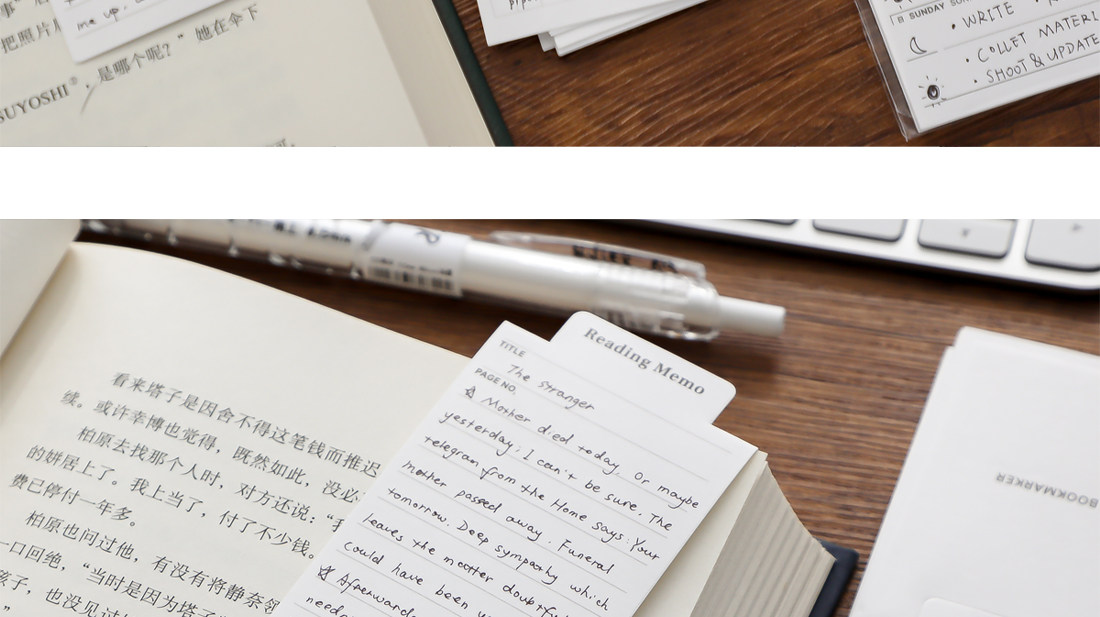 me up.
把照片
是哪个呢？”她在伞下
SUYOSHI®
SUNDAY
• WRITE
• COLLET MATERI
• SHOOT & UPDATE
看来塔子是因舍不得这笔钱而推迟
续。或许幸博也觉得，既然如此，没必
柏原去找那个人时，对方还说：“我
的姘居上了。我上当了，付了不少钱。
费已停付一年多。
柏原也问过他，有没有将静奈领
一口回绝，“当时是因为塔子
孩子，也没见过
Reading Memo
TITLE The stranger
PAGE NO.
☆ Mother died today. Or maybe
yesterday; I can't be sure. The
telegram from the Home says: Your
mother passed away. Funeral
tomorrow. Deep sympathy which
leaves the matter doubtfu
could have been y
☆ Afterwards
need
BOOKMARKER